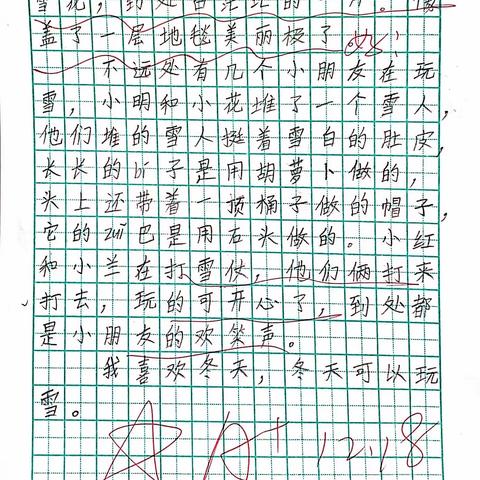 雪花，到处白茫茫的一片。像
盖了一层地毯美丽极了
不远处有几个小朋友在玩
雪，小明和小花堆了一个雪人，
他们堆的雪人挺着雪白的肚皮，
长长的bí子是用胡萝卜做的，
头上还带着一顶桶子做的帽子，
它的zuǐ巴是用石头做的。小红
和小兰在打雪仗，他们俩打来
打去，玩的可开心了，到处都
是小朋友的欢笑声。
我喜欢冬天，冬天可以玩
雪。
A+ 12.18